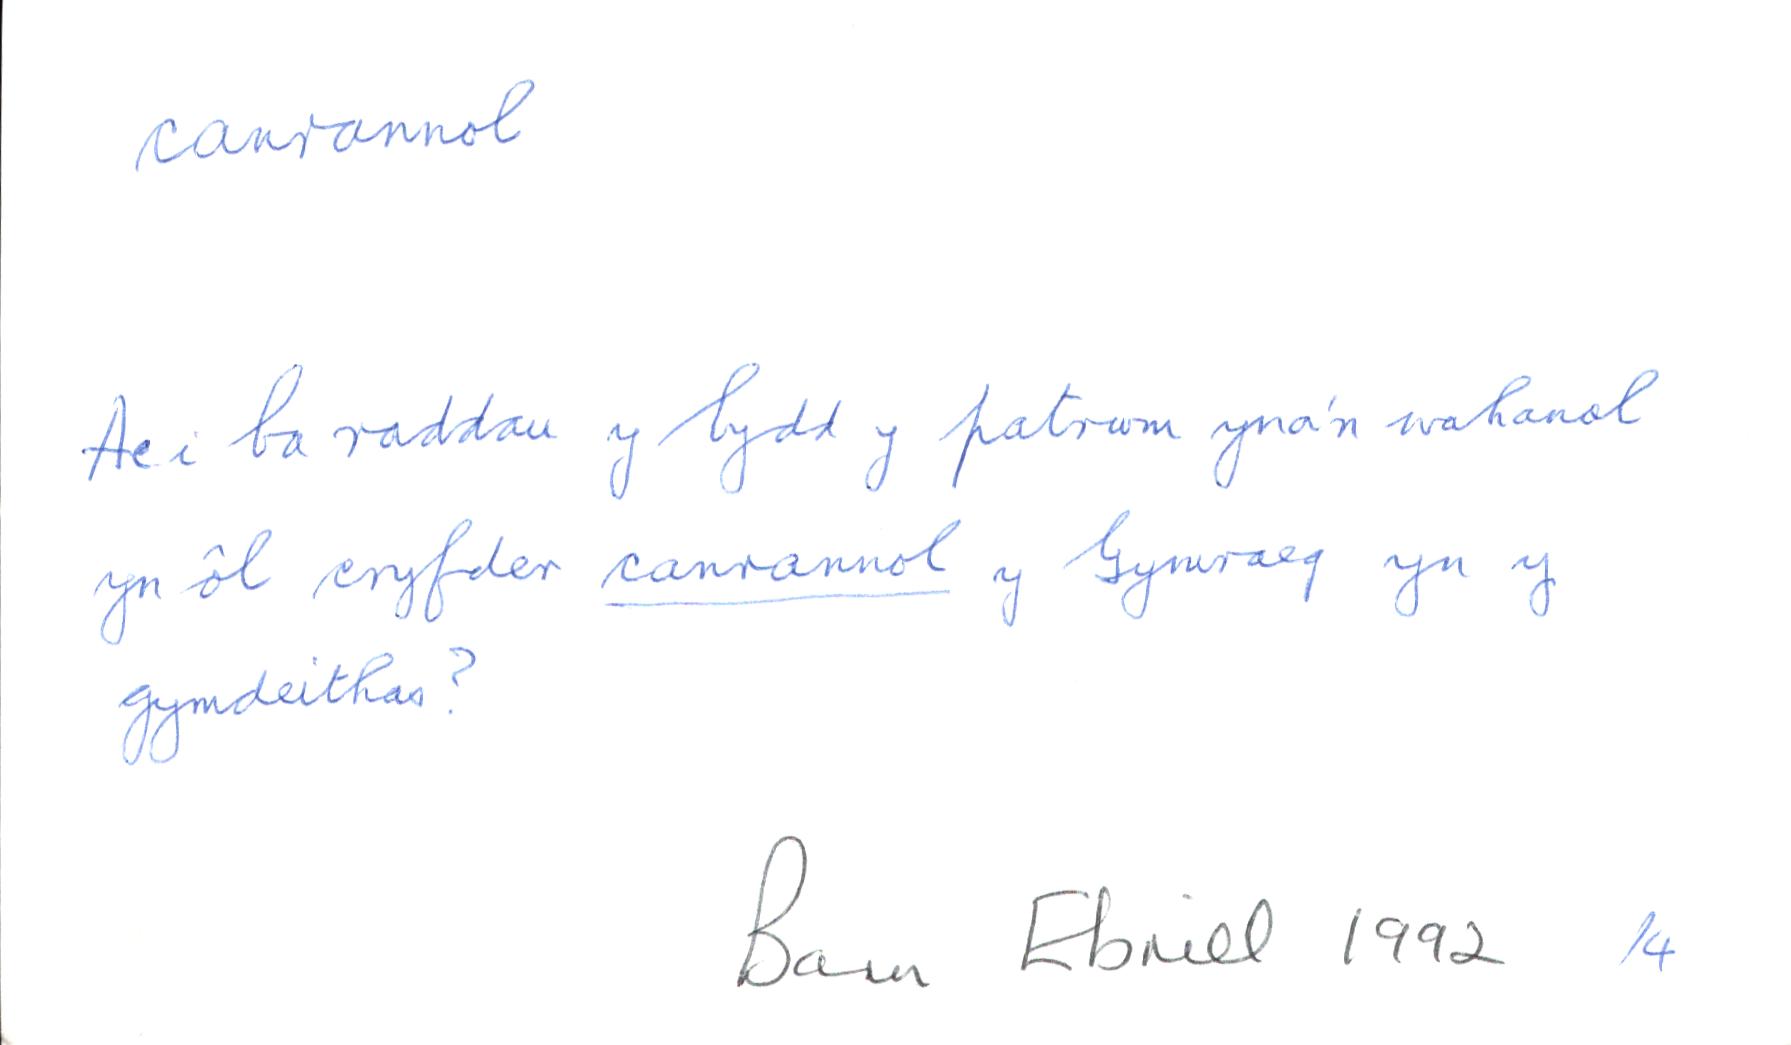 canrannol
Ac i ba raddau y bydd y patrwm yna'n wahanol
yn ôl cryfder canrannol y Gymraeg yn y
gymdeithas?
Barn Ebrill 1992 /4